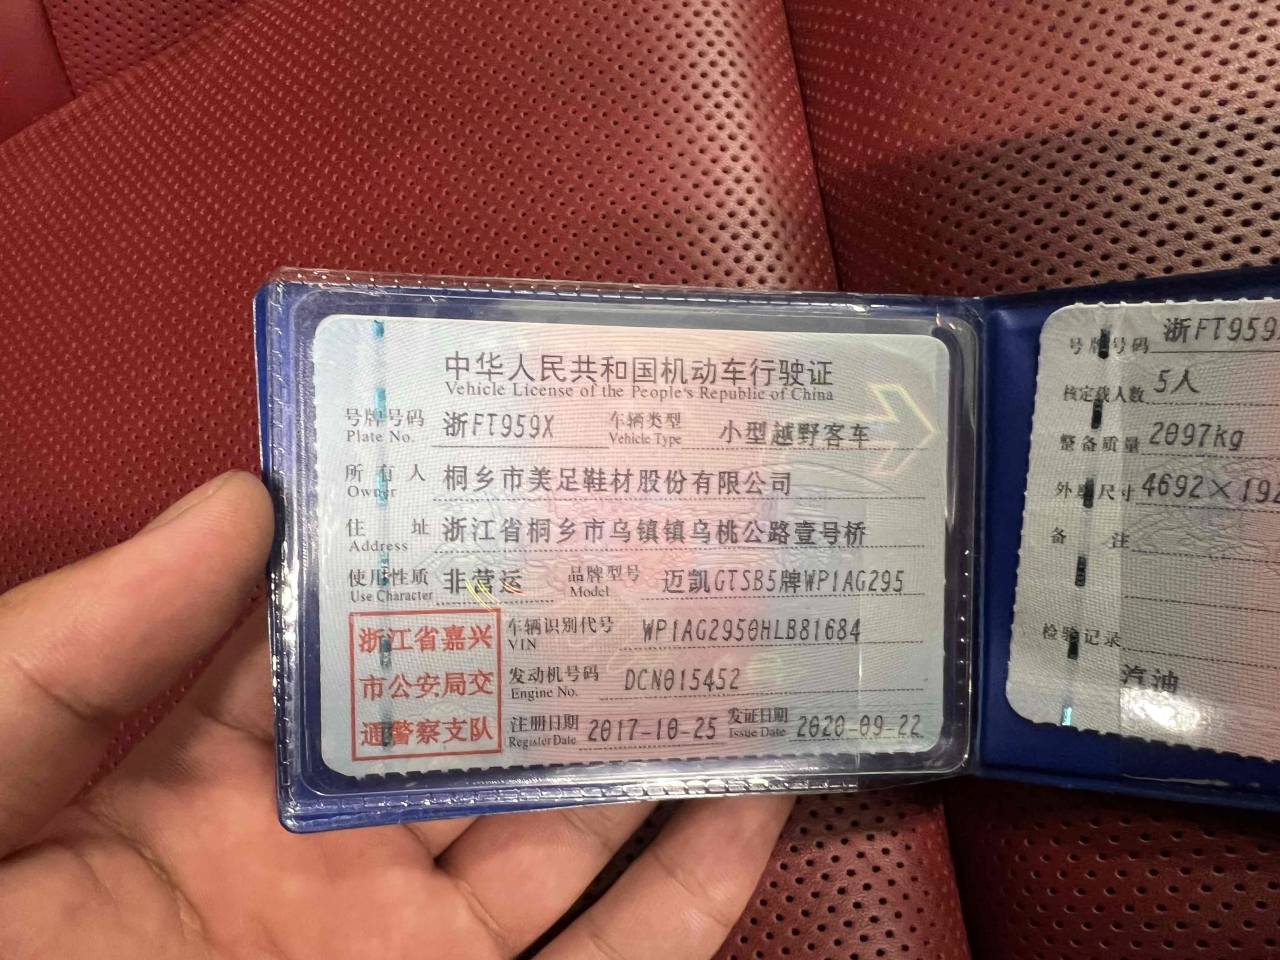 中华人民共和国机动车行驶证
Vehicle License of the People's Republic of China
号牌号码 浙FT959X 车辆类型 小型越野客车
Plate No. Vehicle Type
所有人 桐乡市美足鞋材股份有限公司
Owner
住址 浙江省桐乡市乌镇镇乌桃公路壹号桥
Address
使用性质 非营运 品牌型号 迈凯GTSB5牌WP1AG295
Use Character Model
浙江省嘉兴
市公安局交
通警察支队
车辆识别代号 WP1AG2950HLB81684
VIN
发动机号码 DCN015452
Engine No.
注册日期 2017-10-25 发证日期 2020-09-22
Register Date Issue Date
号牌号码 浙FT959
核定载人数 5人
整备质量 2097kg
外廓尺寸 4692×194
备注
检验记录
汽油